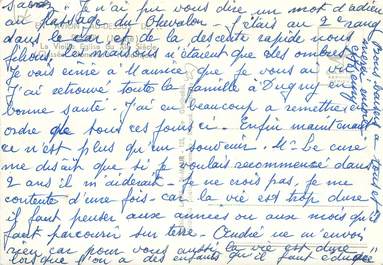 Je n'ai pu vous dire un mot d'adieu
au passage du J'étais au 2 rang
dans le car et de la descente rapide nous
les maisons n'étaient que des ombres
Je vais écrire à Maurice que je vous ai vu
J'ai retrouvé toute la famille à Dugny en
bonne santé. J'ai eu beaucoup à remettre en
ordre que tous ces jours ci. Enfin maintenant
ce n'est plus qu'un souvenir. Mr le curé
me disait que si je voulais recommencé dans
2 ans il m'aiderait. Je ne crois pas. Je me
contente d'une fois car la vie est trop dure
il faut penser aux années ou aux mois qu'il
faut parcourir sur terre. André ne m'envoi
rien car pour vous aussi la vie est dure
lorsque l'on a des enfants qu'il faut éduquer
Bons baisers à tous